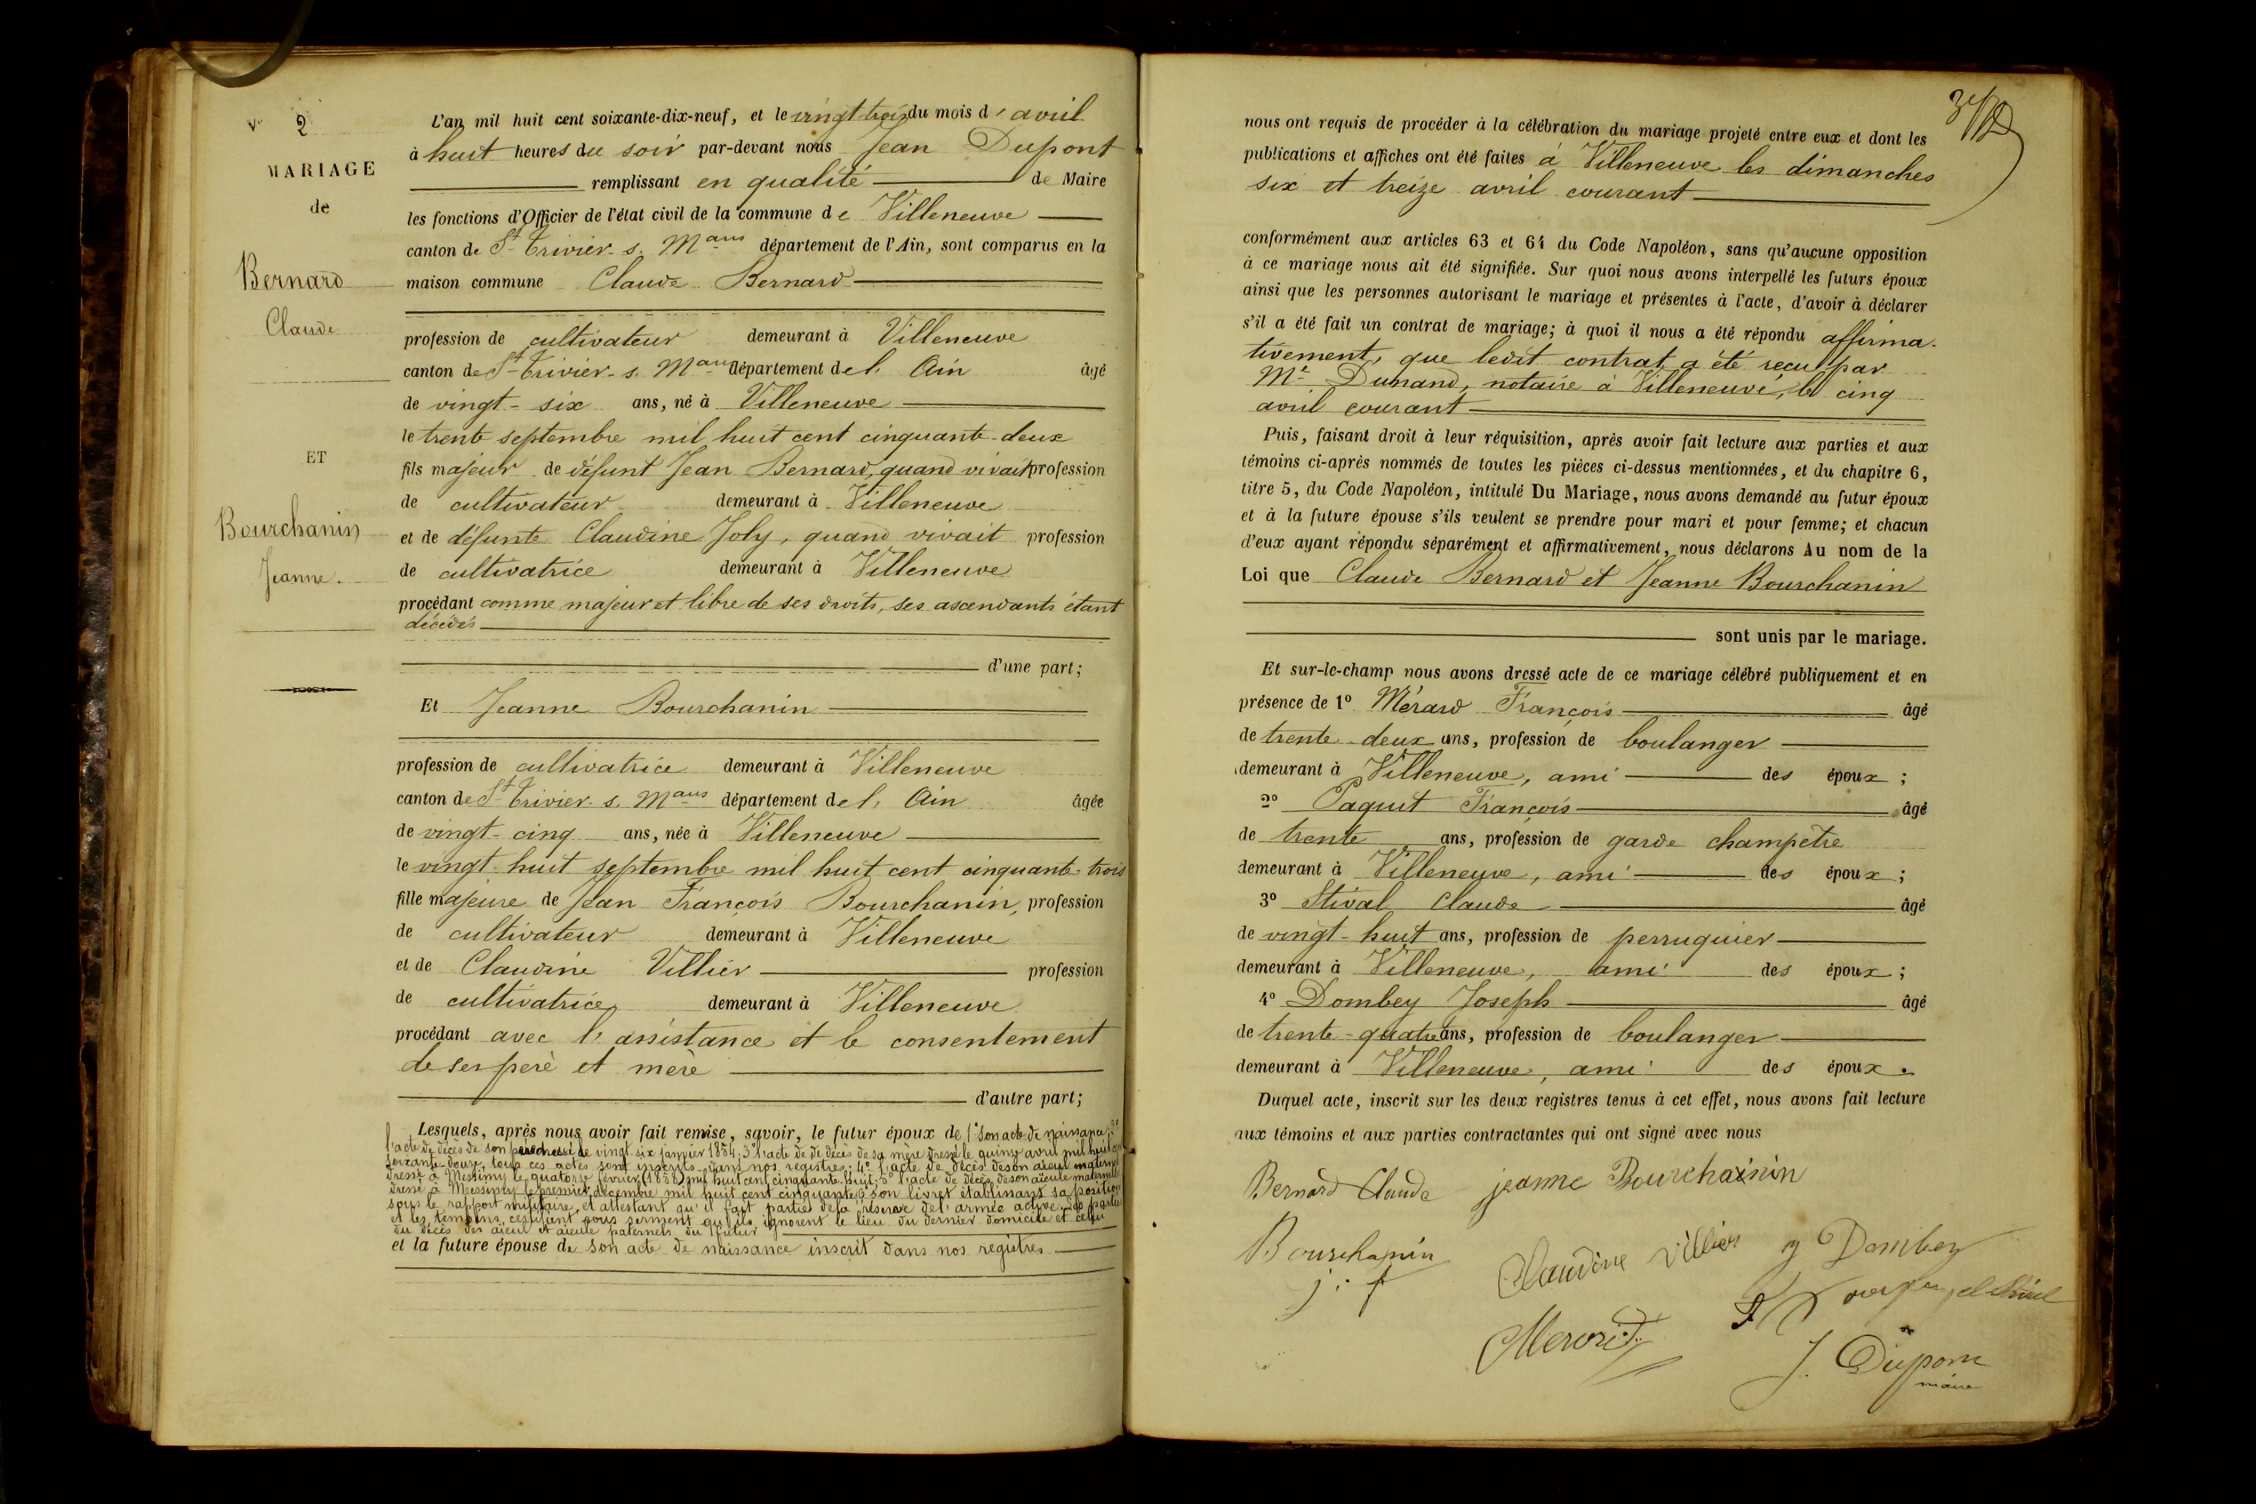 N° 2
MARIAGE
de
Bernard
Claude
ET
Bourchanin
Jeanne.
L'an mil huit cent soixante-dix-neuf, et le vingt-trois du mois d'avril
à huit heures du soir par-devant nous Jean Dupont
remplissant en qualité de Maire
les fonctions d'Officier de l'état civil de la commune de Villeneuve
canton de St Trivier s. Mans département de l'Ain, sont comparus en la
maison commune Claude Bernard
profession de cultivateur demeurant à Villeneuve
canton de St Trivier s. Mans département de l'Ain âgé
de vingt-six ans, né à Villeneuve
le trente septembre mil huit cent cinquante-deux
fils majeur de défunt Jean Bernard, quand vivait profession
de cultivateur demeurant à Villeneuve
et de défunte Claudine Joly, quand vivait profession
de cultivatrice demeurant à Villeneuve
procédant comme majeur et libre de ses droits, ses ascendants étant
décédés
d'une part;
Et Jeanne Bourchanin
profession de cultivatrice demeurant à Villeneuve
canton de St Trivier s. Mans département de l'Ain âgée
de vingt-cinq ans, née à Villeneuve
le vingt-huit septembre mil huit cent cinquante-trois
fille majeure de Jean François Bourchanin, profession
de cultivateur demeurant à Villeneuve
et de Claudine Villier profession
de cultivatrice demeurant à Villeneuve
procédant avec l'assistance et le consentement
de ses père et mère
d'autre part;
Lesquels, après nous avoir fait remise, savoir, le futur époux de 1° son acte de naissance; 2°
l'acte de décès de son père dressé le vingt-six janvier 1854; 3° l'acte de de décès de sa mère dressé le quinze avril mil huit cent
soixante-douze, tous ces actes sont inscrits dans nos registres; 4° l'acte de décès de son aïeul maternel
dressé à Messimy le quatorze février (1858) mil huit cent cinquante-huit; 5° l'acte de décès de son aïeule maternelle
dressé à Messimy le premier décembre mil huit cent cinquante; 6° son livret établissant sa position
sous le rapport militaire, et attestant qu'il fait partie de la réserve de l'armée active. Les parties
et les témoins certifiant sous serment qu'ils ignorent le lieu du dernier domicile et celui
du décès des aïeul et aïeule paternels du futur
et la future épouse de son acte de naissance inscrit dans nos registres
nous ont requis de procéder à la célébration du mariage projeté entre eux et dont les
publications et affiches ont été faites à Villeneuve les dimanches
six et treize avril courant
conformément aux articles 63 et 64 du Code Napoléon, sans qu'aucune opposition
à ce mariage nous ait été signifiée. Sur quoi nous avons interpellé les futurs époux
ainsi que les personnes autorisant le mariage et présentes à l'acte, d'avoir à déclarer
s'il a été fait un contrat de mariage; à quoi il nous a été répondu affirma-
tivement, que ledit contrat a été reçu par
Me Dunand, notaire à Villeneuve, le cinq
avril courant
Puis, faisant droit à leur réquisition, après avoir fait lecture aux parties et aux
témoins ci-après nommés de toutes les pièces ci-dessus mentionnées, et du chapitre 6,
titre 5, du Code Napoléon, intitulé Du Mariage, nous avons demandé au futur époux
et à la future épouse s'ils veulent se prendre pour mari et pour femme; et chacun
d'eux ayant répondu séparément et affirmativement, nous déclarons Au nom de la
Loi que Claude Bernard et Jeanne Bourchanin
sont unis par le mariage.
Et sur-le-champ nous avons dressé acte de ce mariage célébré publiquement et en
présence de 1° Mérard François âgé
de trente-deux ans, profession de boulanger
demeurant à Villeneuve, ami des époux;
2° Paquit François âgé
de trente ans, profession de garde champêtre
demeurant à Villeneuve, ami des époux;
3° Stival Claude âgé
de vingt-huit ans, profession de perruquier
demeurant à Villeneuve, ami des époux;
4° Dombey Joseph âgé
de trente-quatre ans, profession de boulanger
demeurant à Villeneuve, ami des époux.
Duquel acte, inscrit sur les deux registres tenus à cet effet, nous avons fait lecture
aux témoins et aux parties contractantes qui ont signé avec nous
Bernard Claude jeanne Bourchaninin
Bourchanin
j. f
Claudine Villier J Dombey
Merard
J. Dupont
maire